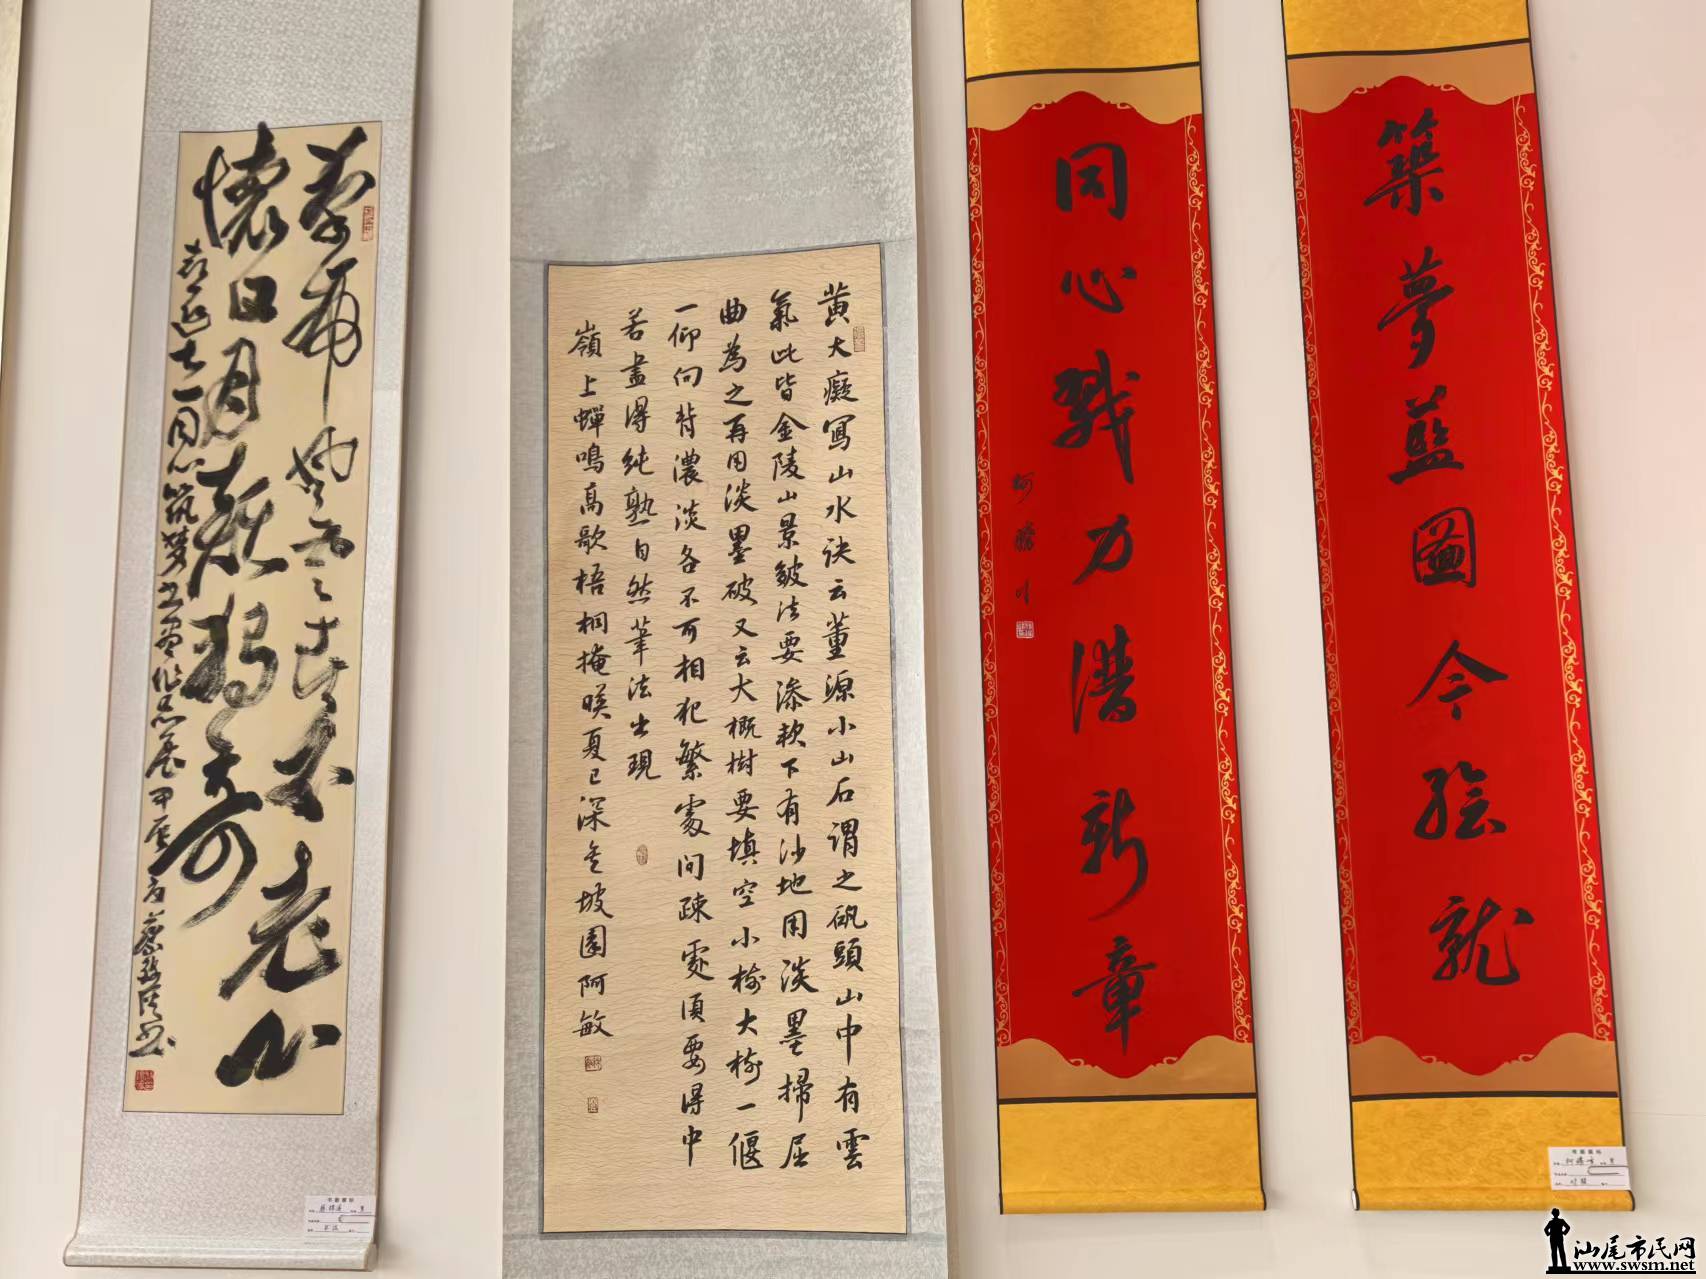 築夢藍圖今繪就
同心戮力譜新章
柯勝
黄大癡寫山水訣云董源小山石謂之矾頭山中有雲
氣此皆金陵山景皴法要滲軟下有沙地用淡墨掃屈
曲為之再用淡墨破又云大概樹要填空小樹大樹一偃
一仰向背濃淡各不可相犯繁處間疎處須要得中
若畫得純熟自然筆法出現
嶺上蟬鳴高歌梧桐掩暎夏已深
坡園阿敏
不老心
懷日月
獨奇
同心筑梦书画作品展甲辰
汕尾市民网
www.swsm.net